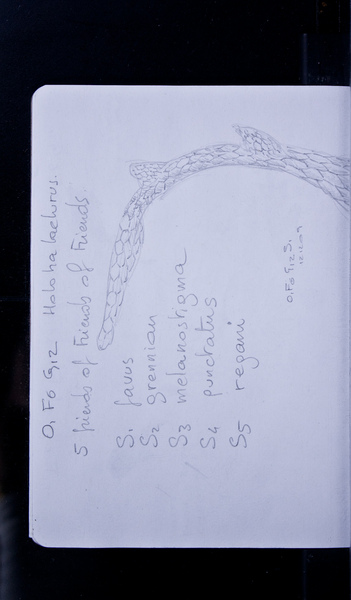 O, Fo G,12 Holohalaelurus.
5 friends of Friends of Friends.
S1 favus
S2 grennian
S3 melanostigma
S4 punctatus
S5 regani
O, Fo G,12 S,
12.12.09